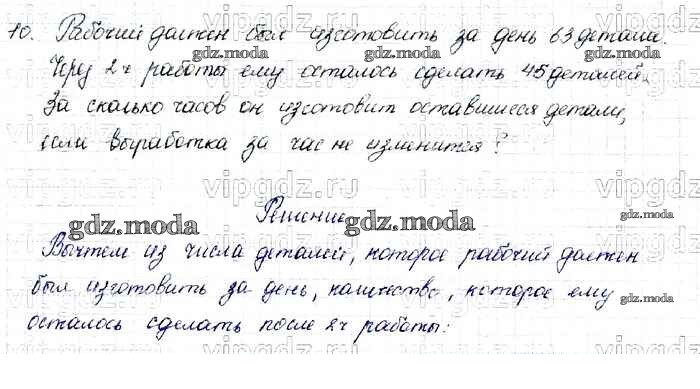 10. Рабочий должен был изготовить за день 63 детали.
Через 2ч работы ему осталось сделать 45 деталей.
За сколько часов он изготовит оставшиеся детали,
если выработка за час не изменится?
Решение
Вычтем из числа деталей, которое рабочий должен
был изготовить за день, количество, которое ему
осталось сделать после 2ч работы:
vipgdz.ru
gdz.moda